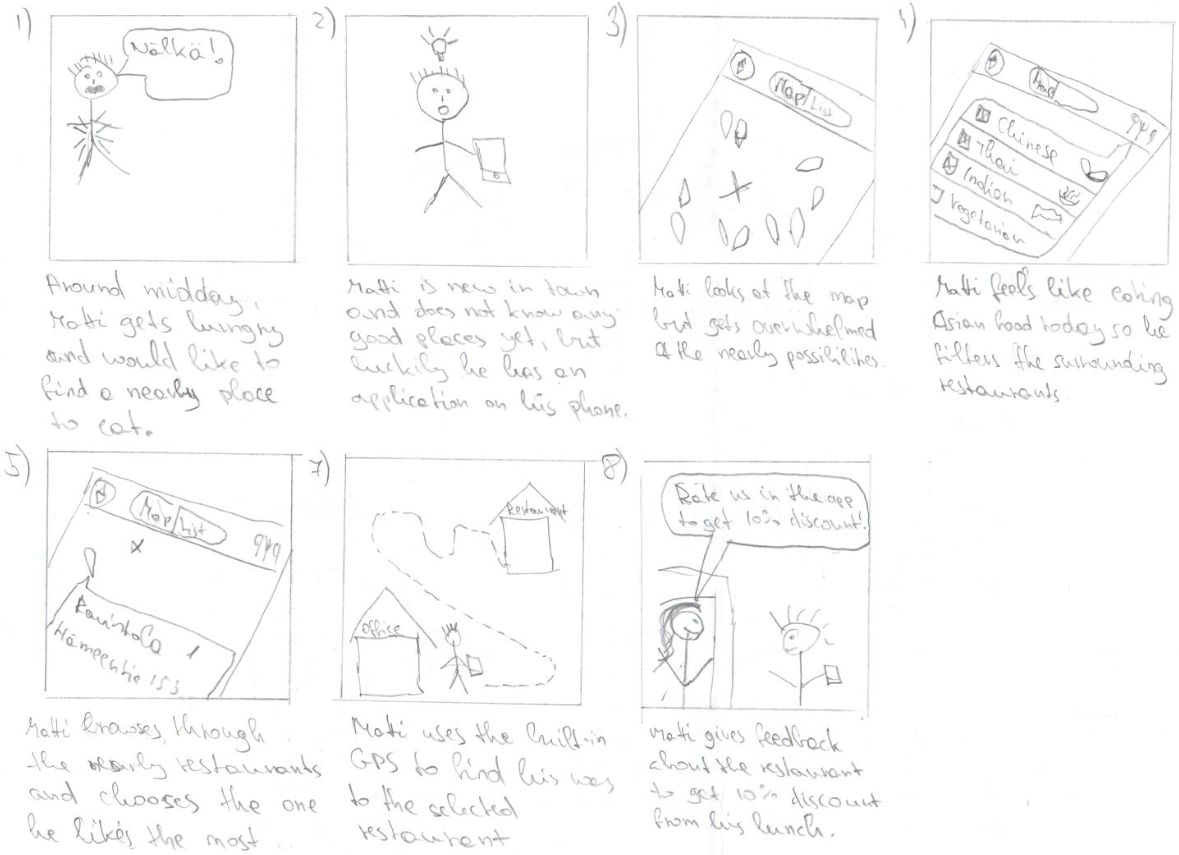 1)
Nälkä!
Around midday,
Matti gets hungry
and would like to
find a nearby place
to eat.
2)
Matti is new in town
and does not know any
good places yet, but
luckily he has an
application on his phone.
3)
Map List
Matti looks at the map
but gets overwhelmed
of the nearby possibilities.
4)
Map
Chinese
Thai
Indian
Vegetarian
Matti feels like eating
Asian food today so he
filters the surrounding
restaurants.
5)
Map List
Ravintola 1
Hämeentie 153
Matti browses through
the nearly restaurants
and chooses the one
he likes the most.
7)
Restaurant
Office
Matti uses the built-in
GPS to find his way
to the selected
restaurant
8)
Rate us in the app
to get 10% discount!
Matti gives feedback
about the restaurant
to get 10% discount
from his lunch.